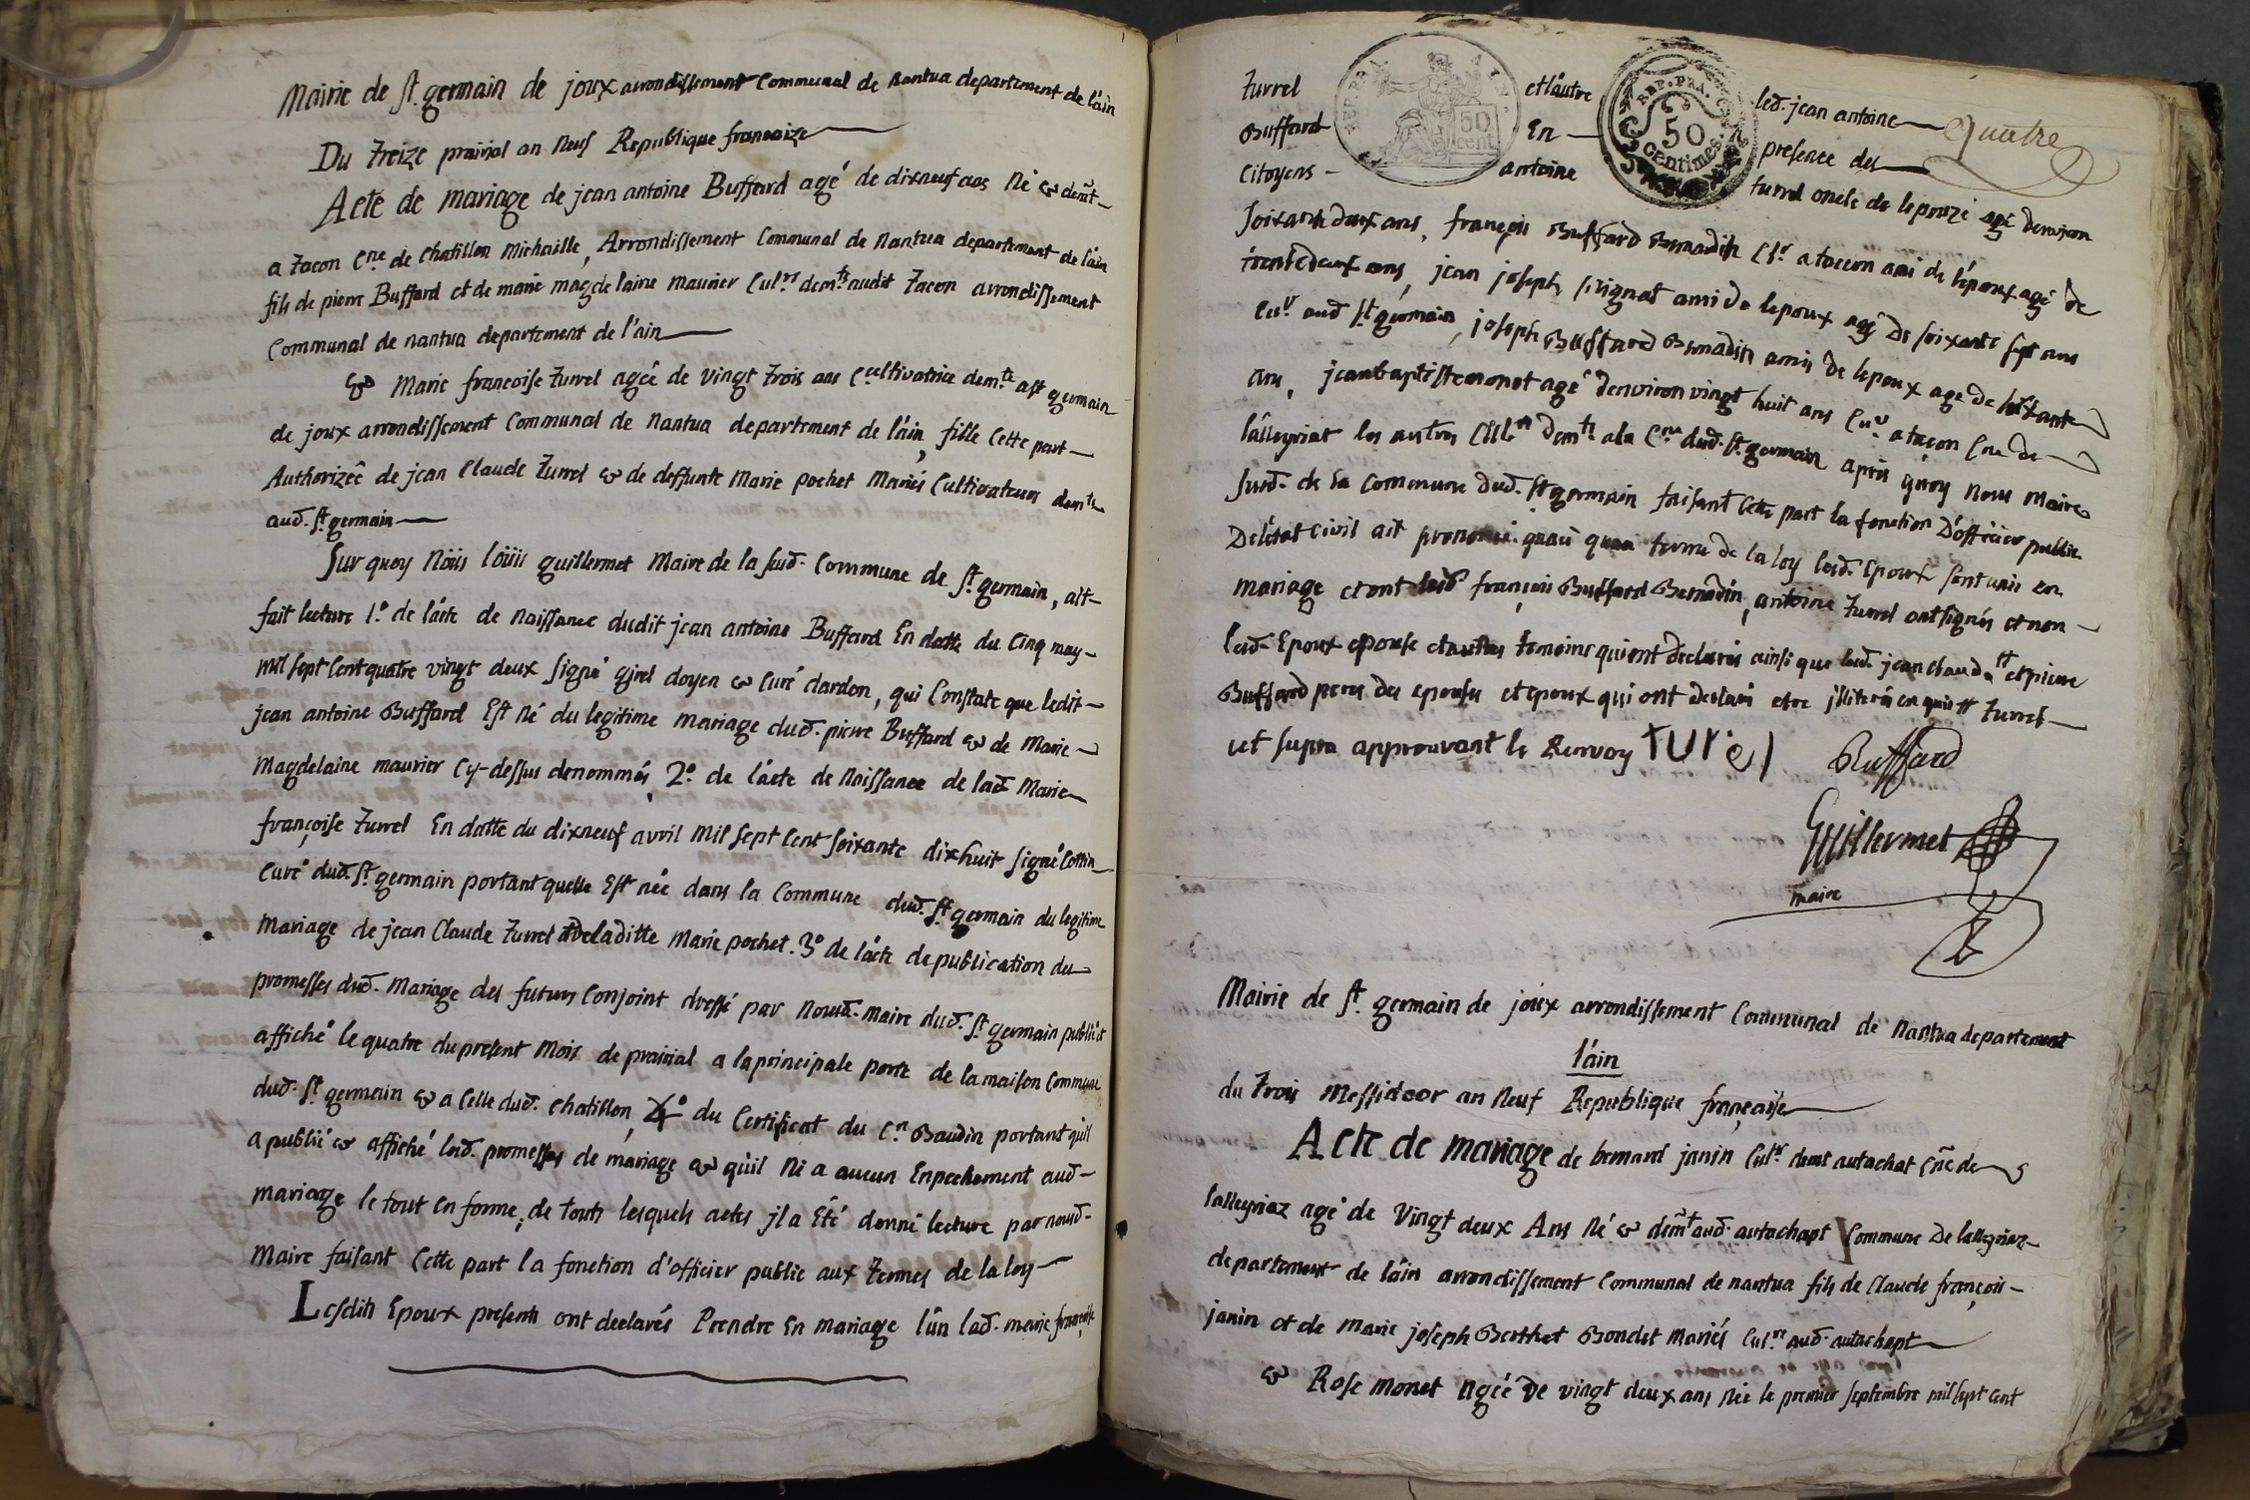 Mairie de St. germain de joux arrondissement Communal de nantua departement de l'ain
Du Treize prairial an Neuf Republique francaize
Acte de mariage de jean antoine Buffard agé de dixneuf ans Né & demt.
a Tacon Cne. de Chatillon Michaille, Arrondissement Communal de Nantua departement de l'ain
fils de pierre Buffard et de marie magdelaine maurier Culrs. demts. audit Tacon arrondissement
Communal de nantua departement de l'ain
& Marie francoise Turrel agée de Vingt Trois ans Ccultivatrice demte. a st germain
de joux arrondissement Communal de Nantua departement de l'ain, fille Cette part
Authorizée de jean Claude Turrel & de deffunte Marie pochet Mariés Cultivateurs demts.
aud. St. germain
Sur quoy Nous Loüis guillermet Maire de la sud. Commune de St. germain, ait
fait lecture 1º. de l'acte de Naissance dudit jean antoine Buffard En datte du Cinq may
mil sept Cent quatre vingt deux signé girel doyen & Curé dardon, qui Constate que ledit
jean antoine Buffard Est Né du legitime mariage dud. pierre Buffard & de Marie
Magdelaine maurier Cy-dessus denommés, 2º. de l'acte de Naissance de lad. Marie
françoise Turrel En datte du dixneuf avril Mil sept Cent soixante dixhuit signé Cottin
Curé dud. St. germain portant quelle Est née dans la Commune dud. St. germain du legitime
Mariage de jean Claude Turrel & de laditte Marie pochet. 3º de l'acte de publication des
promesses dud. Mariage des futurs Conjoint dressé par Nousd. maire dud. St. germain publié et
affiché le quatre du present Mois de prairial a la principale porte de la maison Commune
dud. St. germain & a Celle dud. Chatillon, 4º. du Certificat du Cn. Baudin portant quil
a publié & affiché lesd. promesses de mariage & qu'il Ni a aucun Enpechement aud.
mariage le tout en forme, de touts lesquels actes jl a Eté donné lecture par nousd.
Maire faisant Cette part la fonction d'officier public aux Termes de la loy
Lesdits Epoux presents ont declarés Prendre En mariage l'un lad. marie françoise
Turrel et l'autre led. jean antoine Quatre
Buffard En presence des
Citoyens antoine turrel oncle de lepouze agé denviron
soixante deux ans, françois Buffard Bernardin Clr. a tacon ami de l'époux agé de
trente deux ans, jean joseph ami de lepoux agé De soixante sept ans
Cur. aud. St. germain, joseph Buffard Bernadin amis de lepoux age de
ans, jean baptiste monet agé d'environ vingt huit ans Cur. a tacon Cne de
lalleyriat les autres demts. a la Cne. dud. St. germain après quoy Nous Maire
susd. de la Commune dud. St. germain faisant Cette part la fonction D'officier public
De l'état Civil ait prononcé quau terme de la loy lesd. Epoux sont unis en
mariage et ont lesd. françois Buffard Bernadin, antoine Turrel ont signés et non
lesd. Epoux epouse et autres temoins qui ont declarés ainsi que led. jean claude tt et pierre
Buffard peres des epouse et epoux qui ont declaré etre jlliterés en quis tt Turrel
ut supra approuvant le Renvoy turel Buffard
Guillermet
maire
Mairie de St. germain de joux arrondissement Communal de Nantua departement
l'ain
du Trois Messidoor an Neuf Republique française
Acte de mariage de bernard janin Culr. demt autachat Cne de
lalleyriaz agé de Vingt deux Ans Né & demt aud. autachapt Commune De lalleyriaz
departement de l'ain arrondissement Communal de nantua fils de Claude françois
janin et de marie joseph Berthet Bondet mariés Culrs. aud. autachapt
& Rose monet agée De vingt deux ans née le premier septembre mil sept cent
REP. FRA.
50
cent
REP. FRA.
50
centimes